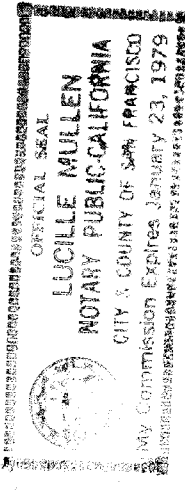 OFFICIAL SEAL
LUCILLE MULLEN
NOTARY PUBLIC-CALIFORNIA
CITY & COUNTY OF SAN FRANCISCO
My Commission Expires January 23, 1979